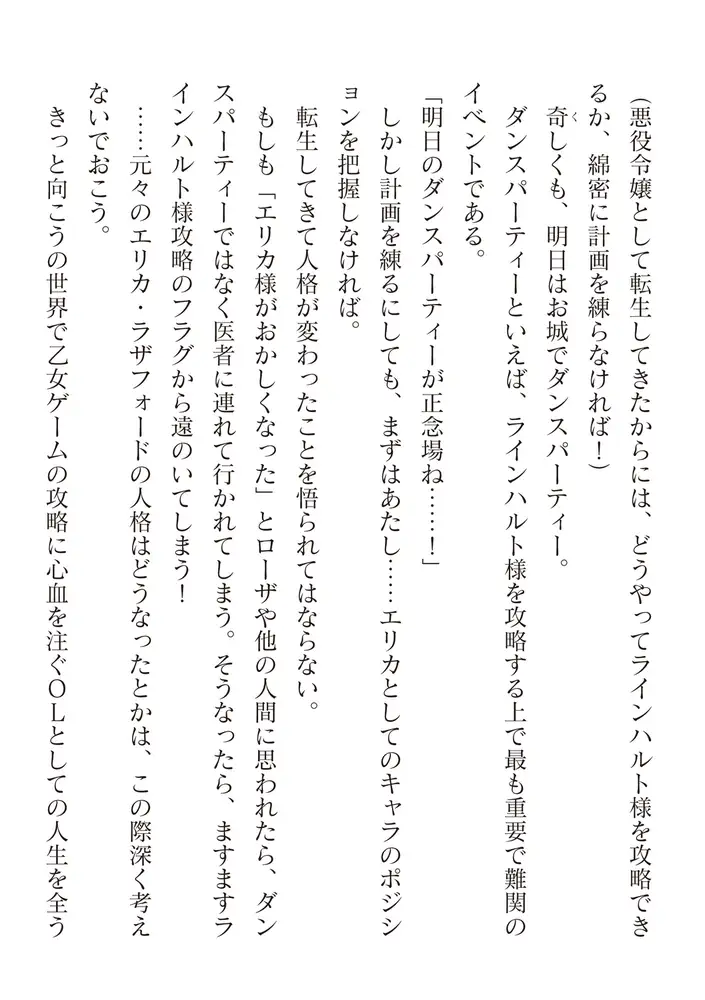 (悪役令嬢として転生してきたからには、どうやってラインハルト様を攻略でき
るか、綿密に計画を練らなければ！)
奇しくも、明日はお城でダンスパーティー。
ダンスパーティーといえば、ラインハルト様を攻略する上で最も重要で難関の
イベントである。
「明日のダンスパーティーが正念場ね……！」
しかし計画を練るにしても、まずはあたし……エリカとしてのキャラのポジシ
ョンを把握しなければ。
転生してきて人格が変わったことを悟られてはならない。
もしも「エリカ様がおかしくなった」とローザや他の人間に思われたら、ダン
スパーティーではなく医者に連れて行かれてしまう。そうなったら、ますますラ
インハルト様攻略のフラグから遠のいてしまう！
……元々のエリカ・ラザフォードの人格はどうなったとかは、この際深く考え
ないでおこう。
きっと向こうの世界で乙女ゲームの攻略に心血を注ぐＯＬとしての人生を全う